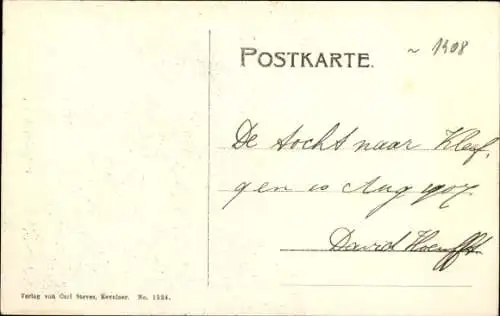 POSTKARTE.
~ 1908
De tocht naar Kleef,
gen 10 Aug 1907.
David
Verlag von Carl Steves, Kevelaer. No. 1524.